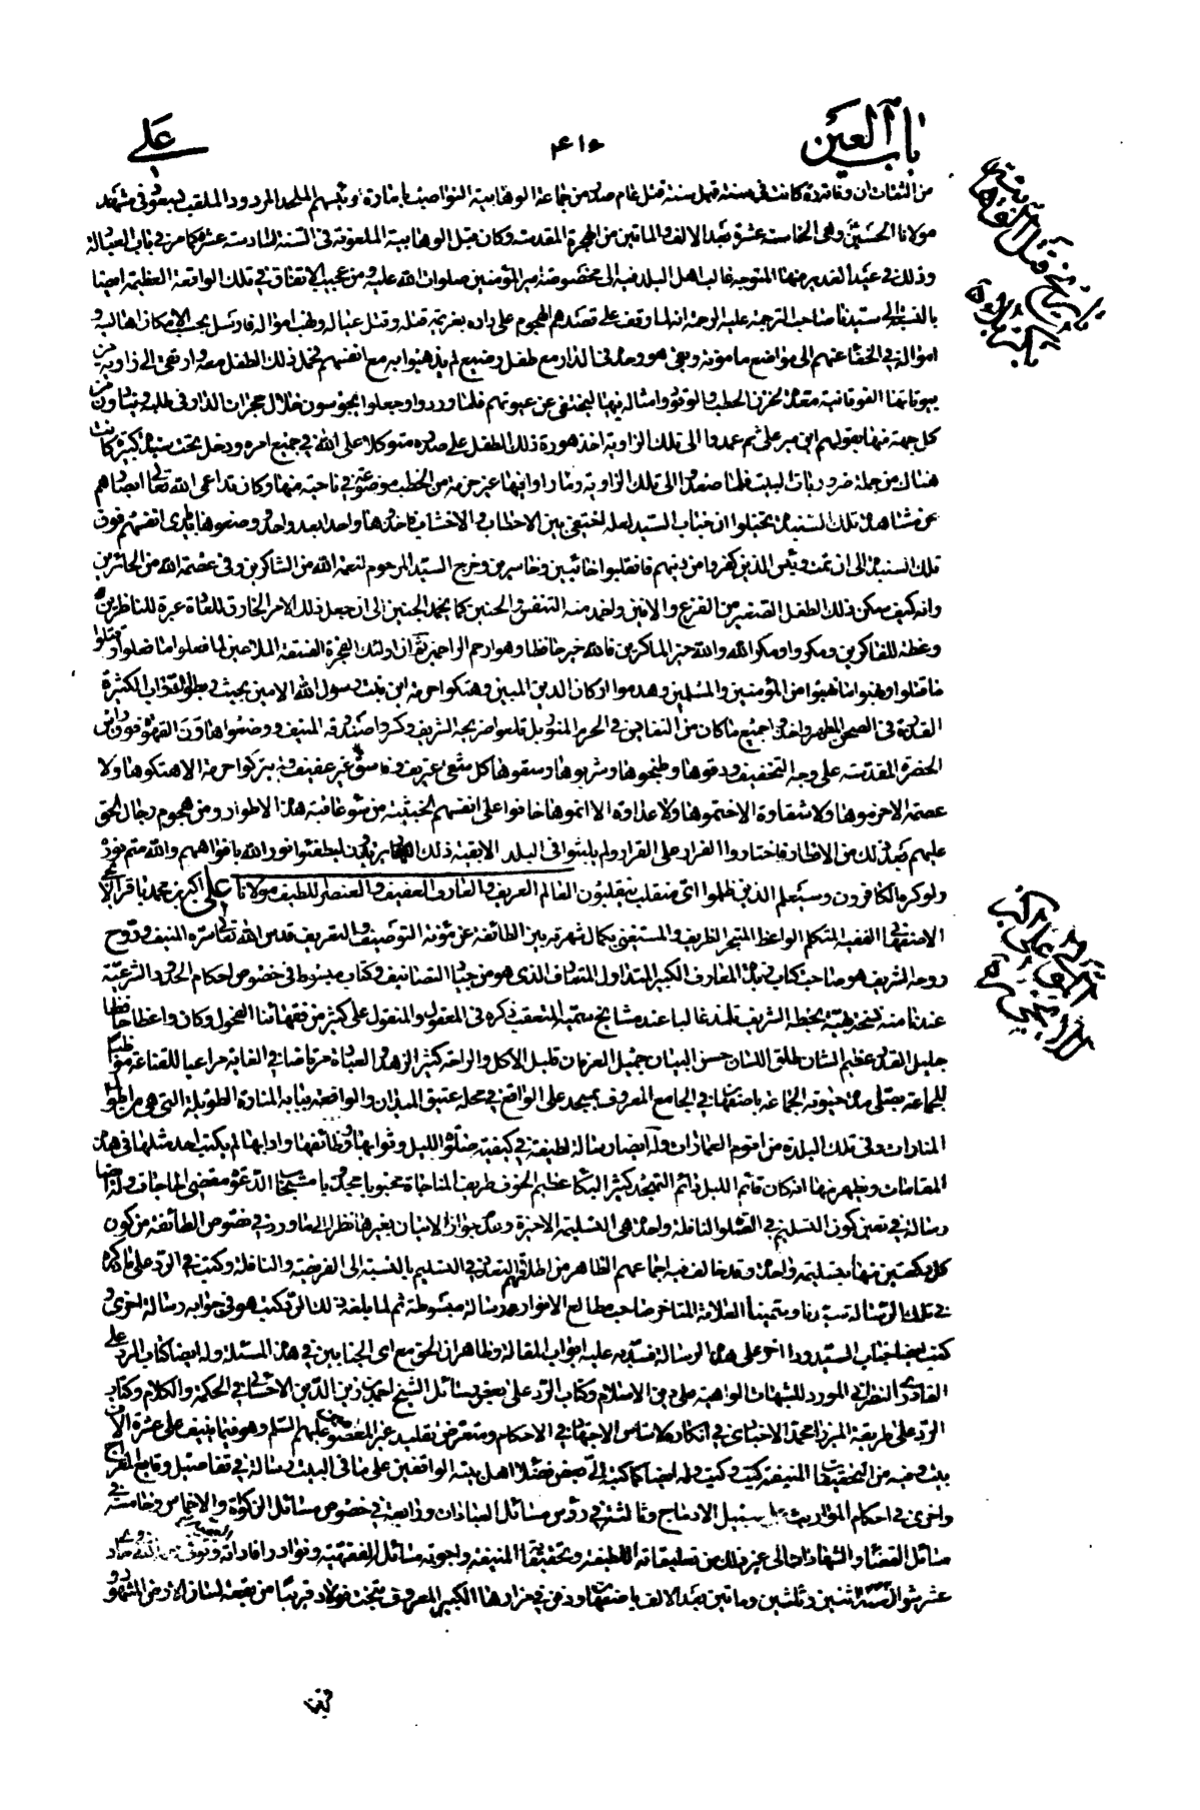 باب العين
٤١٤
علي
تاريخ قتل الوهابية
بكربلاء
من الثقات ان وفاته كانت في سنة قبل سنة قتل عام صدر من جماعة الوهابية النواصب باشارة رئيسهم الملحد المردود الملقب بسعود في مشهد
مولانا الحسين وهى الخامسة عشرة بعد الالف والماتين من الهجرة المقدسة وكان قتل الوهابية الملعونة فى السنة السادسة عشر كما مر في باب العبادلة
وذلك في عيد الغدير منها المتوجه غالب اهل البلد فيه الى مخصوصة امير المؤمنين صلوات الله عليه ومن عجيب الاتفاق في تلك الواقعة العظيمة ايضا
بالنسبة الى سيدنا صاحب الترجمة عليه الرحمة انه لما وقف على قصدهم الهجوم على داره بعزيمة قتله وقتل عياله ونهب امواله فارسل بحسب الامكان اهاليه و
امواله في الخفاء عنهم الى مواضع مامونة وبقى هو وحده في الدار مع طفل رضيع لم يذهبوا به مع انفسهم فحمل ذلك الطفل معه وارتقى الى زاوية من
بيوتاتها الفوقانية معدة لخزن الحطب والوقود وامثاله فيها ليختفى عن عيونهم فلما وردوا وجعلوا يجوسون خلال حجرات الدار في طلبه وينادون من
كل جهة منها بقولهم اين مير علي ثم عمدوا الى تلك الزاوية اخذ هو ره ذلك الطفل على صدره متوكلا على الله في جميع امره ودخل تحت سبد كبيرة كانت
هناك من جملة ضروريات البيت فلما صعدوا الى تلك الزاوية وما راوا فيها غير حزمة من الحطب موضوعة في ناحية منها وكان قد اعمى الله تعالى ابصارهم
عن مشاهدة تلك السبد تخيلوا ان جناب السيد لعله اختفى بين الاحطاب والاخشاب فاخذوها واحدا بعد واحد ووضعوها بايدى انفسهم فوق
تلك السبد الى ان تمت ويئس الذين كفروا من دينهم فانقلبوا خائبين وخاسرين وخرج السيد المرحوم لنعمة الله من الشاكرين وفى عصمة الله من الحائرين
وانه كيف سكن ذلك الطفل الصغير من الفزع والانين واخمد منه التنفس والحنين كما يخمد الجنين الى ان جعل ذلك الامر الخارق للعادة عبرة للناظرين
وعظة للفاكرين ومكروا ومكر الله والله خير الماكرين فالله خير حافظا وهو ارحم الراحمين ثم ان اولئك الفجرة الفسقة الملاعين لما فعلوا ما فعلوا وقتلوا
ما قتلوا ونهبوا ما نهبوا من المؤمنين والمسلمين وهدموا اركان الدين المبين وهتكوا حرمة ابن بنت رسول الله الامين بحيث ربطوا الدواب الكثيرة
القذرة فى الصحن المطهر واخذوا جميع ما كان من النفايس في الحرم المنور بل قلعوا ضريحه الشريف وكسروا صندوقه المنيف ووضعوا هاون القهوة فوق راس
الحضرة المقدسة على وجه التخفيف ودقوها وطبخوها وشربوها وسقوها كل شقى عتريف وفاسق غير عفيف ولم يتركوا حرمة الا هتكوها ولا
عصمة الا خرموها ولا شقاوة الا ختموها ولا عداوة الا اتموها خافوا على انفسهم الخبيثة من سوء عاقبة هذه الاطوار ومن هجوم رجال الحق
عليهم بعد ذلك من الاقطار فاختاروا الفرار على القرار ولم يلبثوا فى البلد الا بقية ذلك النهار يريدون ليطفئوا نور الله بافواههم والله متم نوره
ولو كره الكافرون وسيعلم الذين ظلموا اى منقلب ينقلبون العالم العريف والعارف العفيف والعنصر اللطيف مولانا علي اكبر بن محمد باقر الايجى
الاصفهاني الفقيه المتكلم الواعظ المتبحر الظريف والمستغنى بكمال شهرته بين الطائفة عن مؤنة التوصيف والتعريف قدس الله تعالى سره المنيف وروح
روحه الشريف هو صاحب كتاب زبدة المعارف الكبير المتداول المتعارف الذى هو من جياد التصانيف وكتاب مبسوط فى خصوص احكام الحدود الشرعية
عندنا منه نسخة خطية بخطه الشريف تلمذ غالبا عند مشايخ سميه المتعقب ذكره فى المعقول والمنقول على كثير من فقهائنا الفحول وكان واعظا حافظا
جليل القدر عظيم الشان طلق اللسان حسن البيان جميل العرفان قليل الاكل والراحة كثير الزهد والعبادة مرتاضا في الغاية مراعيا للقناعة مواظبا
للجماعة يصلى مدة حيوته الجماعة باصفهان في الجامع المعروف بمسجد علي الواقع في محلة عتيق الميدان والواقعة ببابه المنارة الطويلة التى هى من اطول
المنارات وفى تلك البلدة من اقوم العمارات وله ايضا رسالة لطيفة في كيفية صلوة الليل وثوابها ووظائفها وادابها لم يكتب احد مثلها فى هذه
المقامات ويظهر منها انه كان قائم الليل دائم التهجد كثير البكاء عظيم الخوف ظريف المناجاة محبوبا مجدا مستجاب الدعوة مقضى الحاجات وله ايضا
رسالة في تعيين كون التسليم في الصلوة النافلة واحدة هى التسليمة الاخيرة وعدم جواز الاتيان بغيرها نظرا الى ما ورد في خصوص الطائفة من كون
كل ركعتين منها بتسليمة واحدة وقد خالف فيه اجماعهم الظاهر من اطلاقهم التعدد في التسليم بالنسبة الى الفريضة والنافلة وكتب في الرد على ما ذكره
في تلك الرسالة سيدنا وسمينا العلامة المتاخر صاحب مطالع الانوار ره رسالة مبسوطة ثم لما بلغه ذلك الرد كتب هو فى جوابه رسالة اخرى و
كتب ايضا جناب السيد ردا اخر على هذه الرسالة فسد به عليه ابواب المقالة وظاهر ان الحق مع اى الجنابين في هذه المسئلة وله ايضا كتاب الرد على
الفادرى النصراني المورد للشبهات الواهية على دين الاسلام وكتاب الرد على بعض رسائل الشيخ احمد بن زين الدين الاحسائي في الحكمة والكلام وكتاب
الرد على طريقة الميرزا محمد الاخبارى في انكاره لاساس الاجتهاد في الاحكام ومتعرض تقليد غير المعصومين عليهم السلم وهو فيما ينيف على عشرة الاف
بيت وفيه من التحقيقات المنيفة كيت وكيت وله ايضا كما كتبه الى بعض فضلاء اهل بيته الواقفين على ما في البيت رسالة في تفاصيل وقايع المعراج
واخرى في احكام المواريث على سبيل الادماج وثالثة في رؤس مسائل العبادات ورابعة في خصوص مسائل الزكوة والاخماس وخامسة في
مسائل القضاء والشهادات الى غير ذلك من تعليقاته اللطيفة وتحقيقاته المنيفة واجوبة مسائله الفقهية ونوادر افاداته وتوفى
عشر شوال سنة اثنين وثلثين وماتين بعد الالف باصفهان ودفن في مزارها الكبير المعروف بتخت فولاد قريبا من بقعة لسان الارض المشهور
المولى علي اكبر
الايجى ره